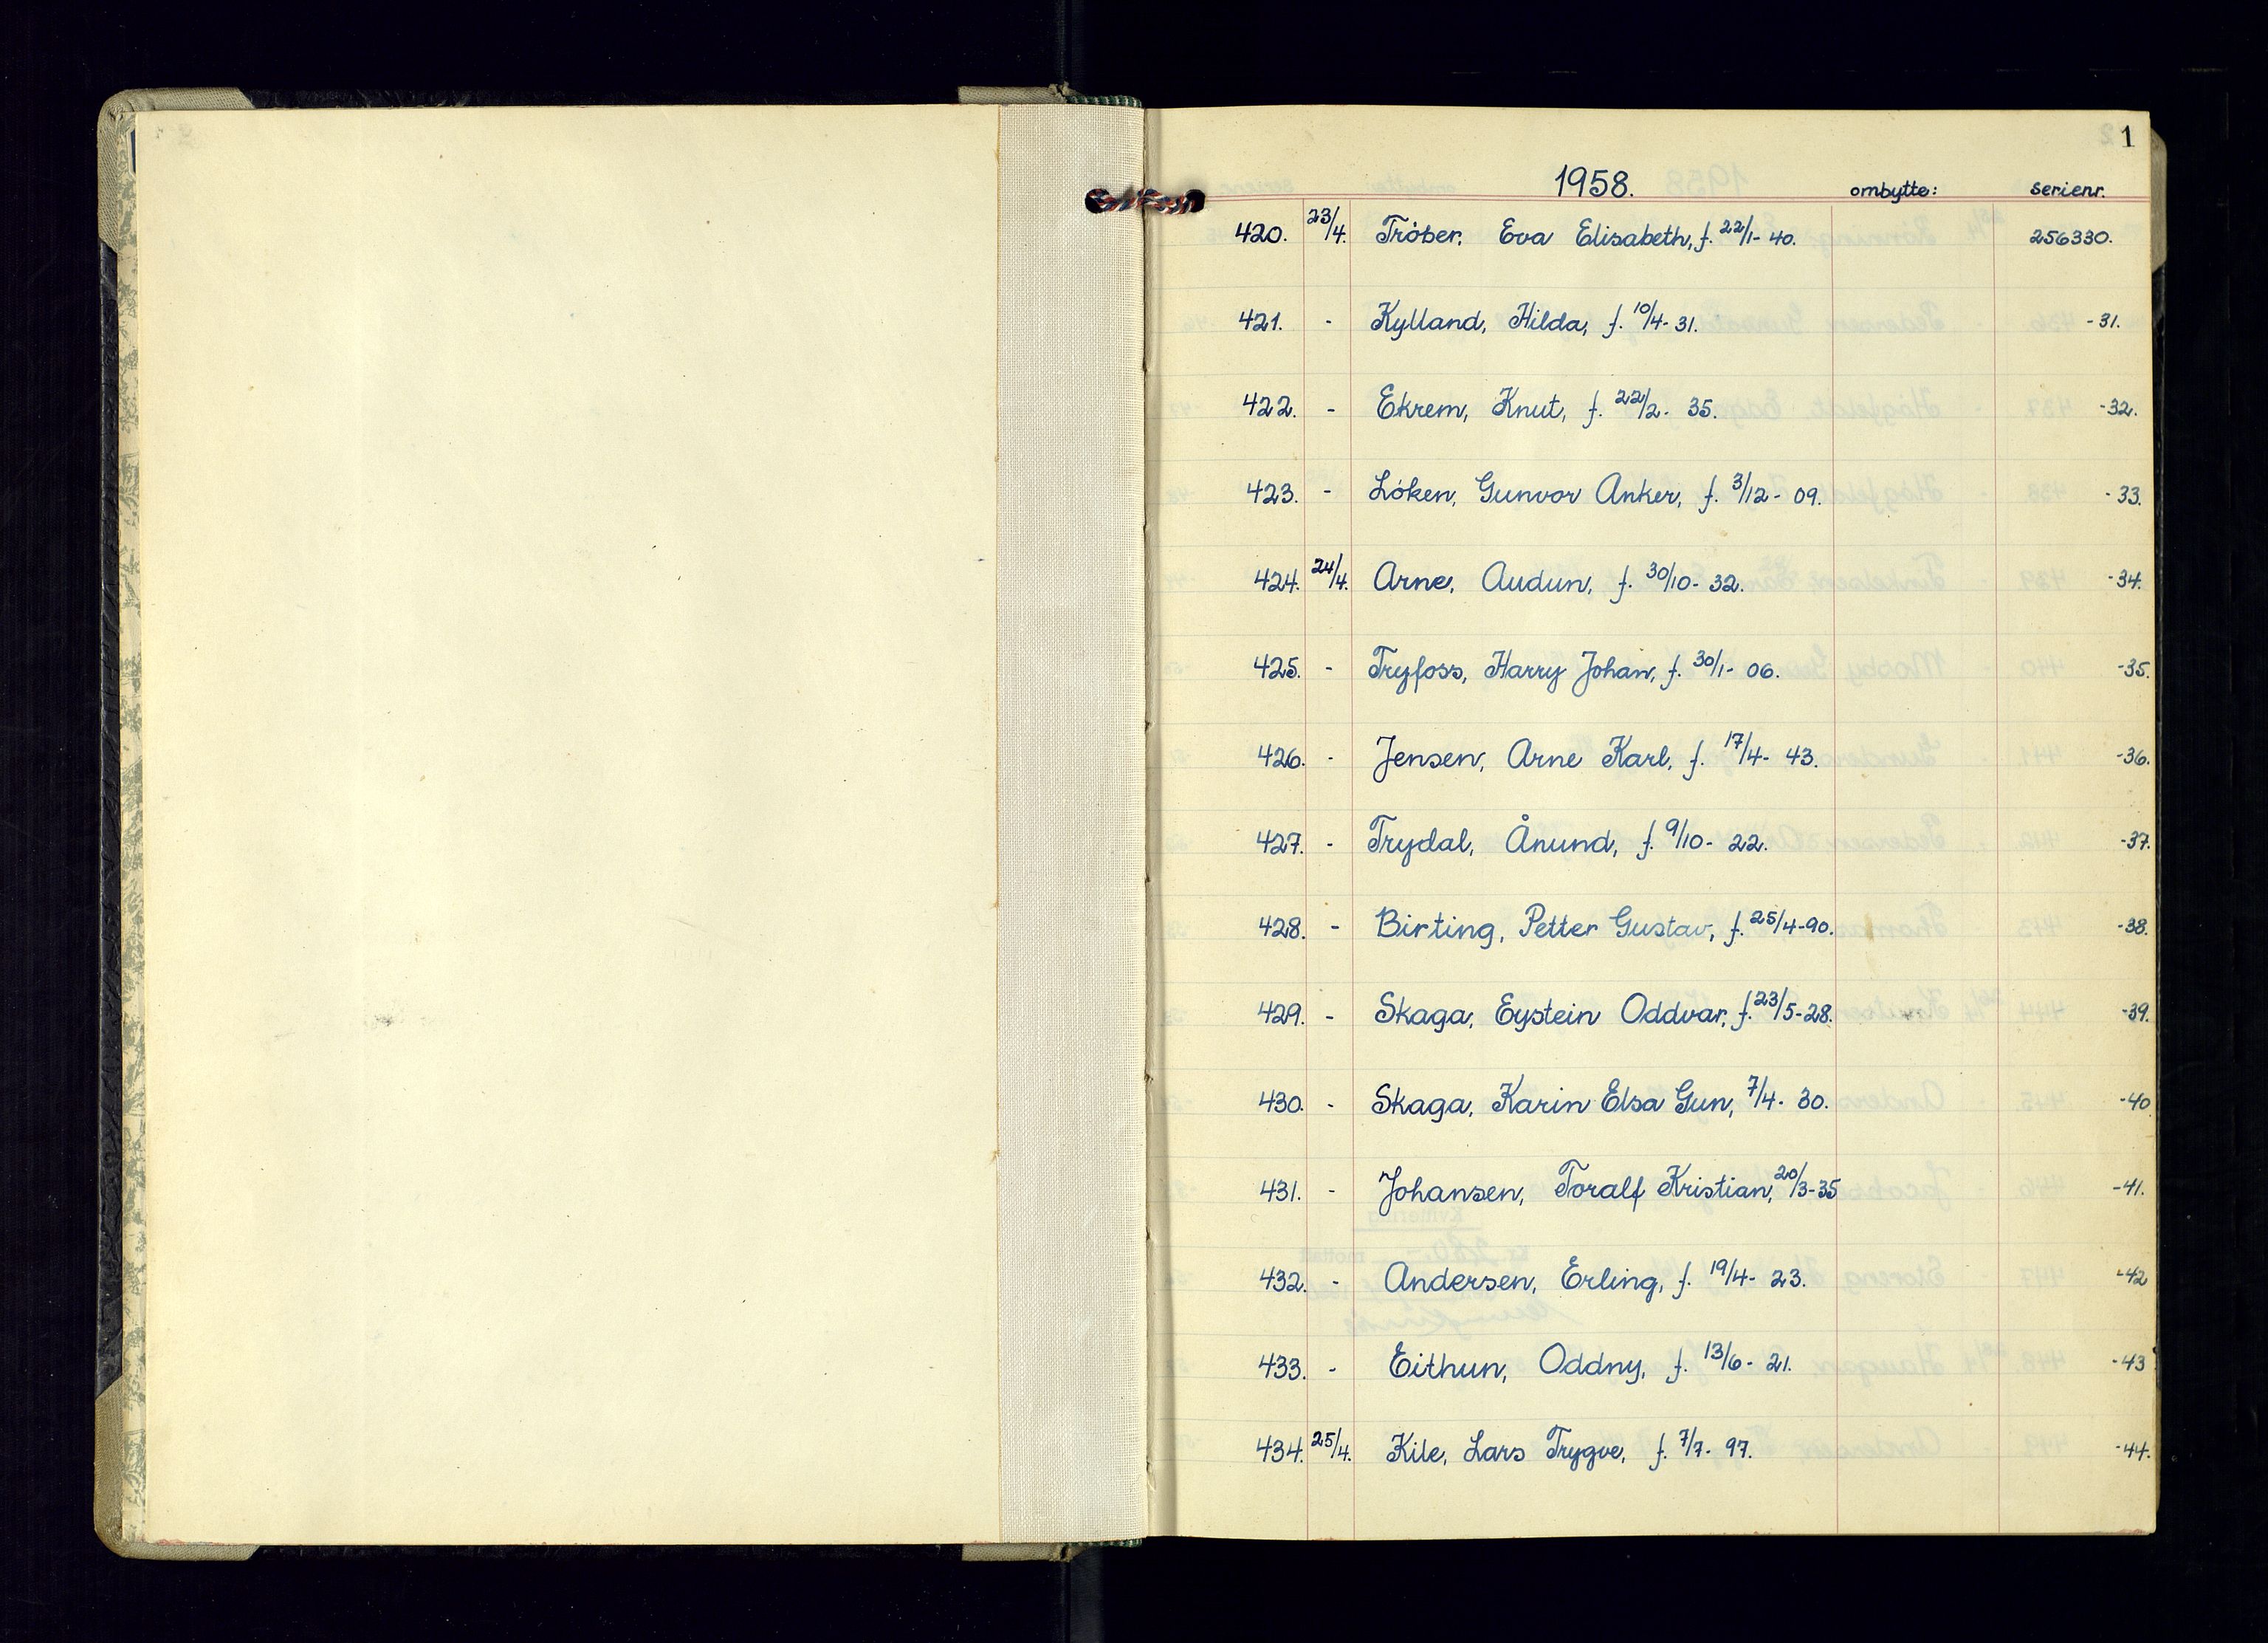 1
1958. ombytte: serienr.
420. 23/4. Tröber, Eva Elisabeth, f. 22/1- 40. 256330.
421. - Kylland, Hilda, f. 10/4- 31. -31.
422. - Ekrem, Knut, f. 22/2- 35. -32.
423. - Löken, Gunvor Anker, f. 3/12- 09. -33.
424. 24/4. Arne, Audun, f. 30/10- 32. -34.
425. - Tryfoss, Harry Johan, f. 30/1- 06. -35.
426. - Jensen, Arne Karl, f. 17/4- 43. -36.
427. - Trydal, Ånund, f. 9/10- 22. -37.
428. - Birting, Petter Gustav, f. 25/4-90. -38.
429. - Skaga, Eystein Oddvar, f. 23/5-28. -39.
430. - Skaga, Karin Elsa Gun, 7/4- 30. -40
431. - Johansen, Toralf Kristian, 20/3-35 -41.
432. - Andersen, Erling, f. 19/4- 23. -42
433. - Eithun, Oddny, f. 13/6- 21. -43
434. 25/4. Kile, Lars Trygve, f. 7/7- 97. -44.